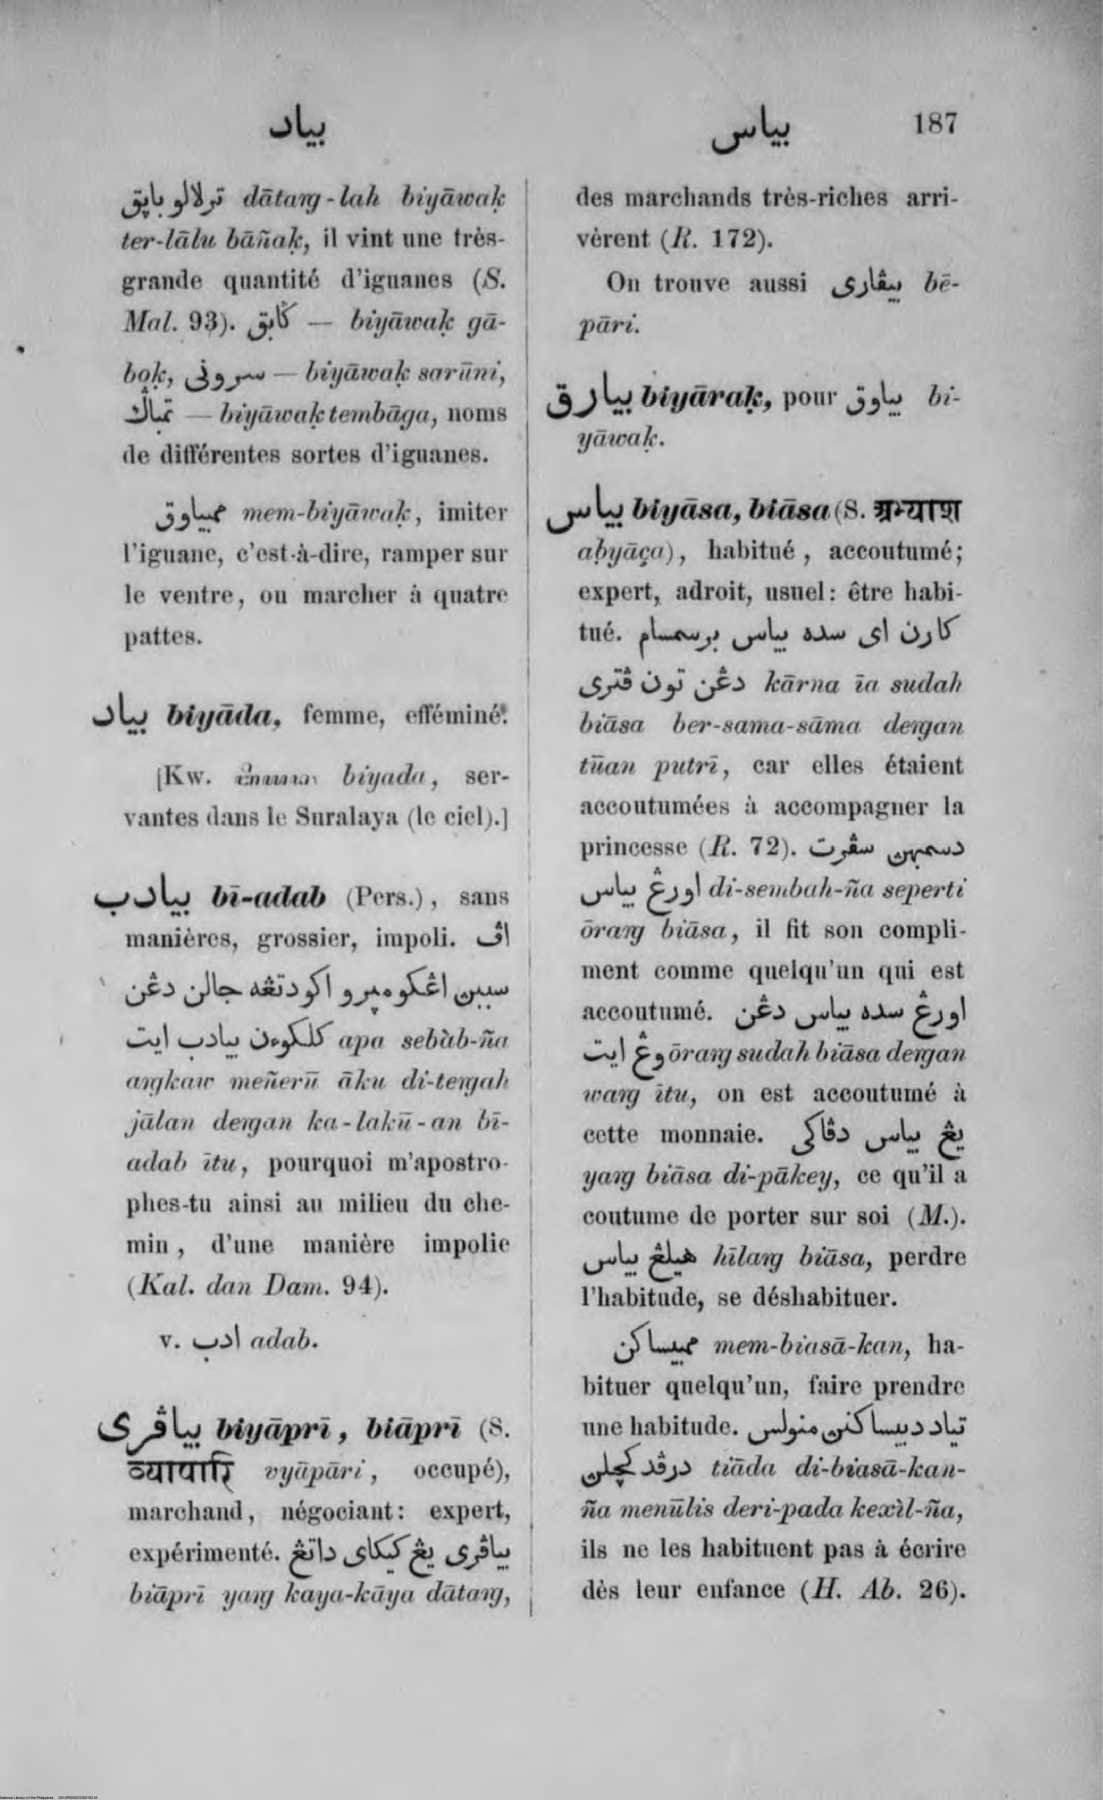 بياد
بياس 187
ترلالو باڽق dātaŋ-lah biyāwaḳ
ter-lālu bāñaḳ, il vint une très-
grande quantité d'iguanes (S.
Mal. 93). ݢابق — biyāwaḳ gā-
boḳ, سروني — biyāwaḳ sarūni,
تمباݢ — biyāwaḳ tembāga, noms
de différentes sortes d'iguanes.
ممبياوق mem-biyāwaḳ, imiter
l'iguane, c'est-à-dire, ramper sur
le ventre, ou marcher à quatre
pattes.
بياد biyāda, femme, efféminé.
[Kw. biyada, ser-
vantes dans le Suralaya (le ciel).]
بيادب bī-adab (Pers.), sans
manières, grossier, impoli. اڤ
سببن اڠكو مڽرو اكو دتڠه جالن دڠن
كلكوءن بيادب ايت apa sebàb-ña
aŋkaw meñerū āku di-teŋah
jālan deŋan ka-lakū-an bī-
adab ītu, pourquoi m'apostro-
phes-tu ainsi au milieu du che-
min, d'une manière impolie
(Kal. dan Dam. 94).
v. ادب adab.
بياڤري biyāprī, biāprī (S.
व्यापारि vyāpāri, occupé),
marchand, négociant: expert,
expérimenté. بياڤري يڠ كيكاي داتڠ
biāprī yaŋ kaya-kāya dātaŋ,
des marchands très-riches arri-
vèrent (R. 172).
On trouve aussi بيڤاري bē-
pāri.
بيارق biyāraḳ, pour بياوق bi-
yāwaḳ.
بياس biyāsa, biāsa (S. अभ्याश
aḅyāça), habitué, accoutumé;
expert, adroit, usuel: être habi-
tué. كارن اي سده بياس برسمسام
دڠن تون ڤتري kārna īa sudah
biāsa ber-sama-sāma deŋan
tūan putrī, car elles étaient
accoutumées à accompagner la
princesse (R. 72). دسمبهن سڤرت
اورڠ بياس di-sembah-ña seperti
ōraŋ biāsa, il fit son compli-
ment comme quelqu'un qui est
accoutumé. اورڠ سده بياس دڠن
وڠ ايت ōraŋ sudah biāsa deŋan
waŋ ītu, on est accoutumé à
cette monnaie. يڠ بياس دڤاكي
yaŋ biāsa di-pākey, ce qu'il a
coutume de porter sur soi (M.).
هيلڠ بياس hīlaŋ biāsa, perdre
l'habitude, se déshabituer.
ممبيساكن mem-biasā-kan, ha-
bituer quelqu'un, faire prendre
une habitude. تياد دبيساكنن منولس
درڤد كچلن tiāda di-biasā-kan-
ña menūlis deri-pada kexìl-ña,
ils ne les habituent pas à écrire
dès leur enfance (H. Ab. 26).